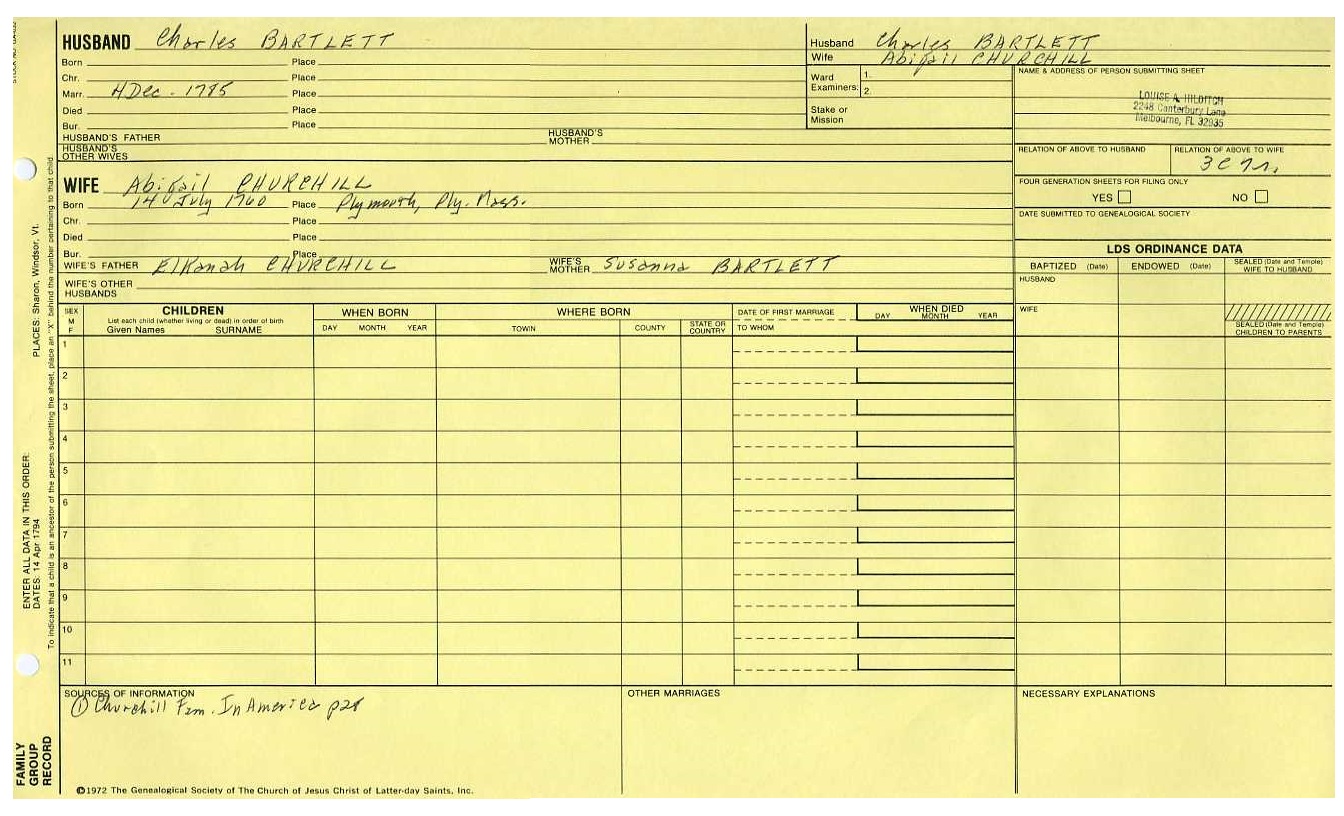 HUSBAND Charles BARTLETT
Born Place
Chr. Place
Marr. 4 Dec - 1785 Place
Died Place
Bur. Place
HUSBAND'S FATHER HUSBAND'S MOTHER
HUSBAND'S OTHER WIVES
Husband Charles BARTLETT
Wife Abigail CHURCHILL
Ward Examiners: 1.
2.
Stake or Mission
NAME & ADDRESS OF PERSON SUBMITTING SHEET
LOUISE A. HILDITCH
2248 Canterbury Lane
Melbourne, FL 32935
RELATION OF ABOVE TO HUSBAND RELATION OF ABOVE TO WIFE
FOUR GENERATION SHEETS FOR FILING ONLY
YES NO
DATE SUBMITTED TO GENEALOGICAL SOCIETY
WIFE Abigail CHURCHILL
Born 14 July 1760 Place Plymouth, Ply. Mass.
Chr. Place
Died Place
Bur. Place
WIFE'S FATHER Elkanah CHURCHILL WIFE'S MOTHER Susanna BARTLETT
WIFE'S OTHER HUSBANDS
LDS ORDINANCE DATA
BAPTIZED (Date) ENDOWED (Date) SEALED (Date and Temple) WIFE TO HUSBAND
HUSBAND
WIFE
SEALED (Date and Temple) CHILDREN TO PARENTS
SEX M F
CHILDREN
List each child (whether living or dead) in order of birth
Given Names SURNAME
WHEN BORN
DAY MONTH YEAR
WHERE BORN
TOWN COUNTY STATE OR COUNTRY
DATE OF FIRST MARRIAGE
TO WHOM
WHEN DIED
DAY MONTH YEAR
1
2
3
4
5
6
7
8
9
10
11
SOURCES OF INFORMATION
① Churchill Fam. In America
OTHER MARRIAGES
NECESSARY EXPLANATIONS
©1972 The Genealogical Society of The Church of Jesus Christ of Latter-day Saints, Inc.
FAMILY GROUP RECORD
ENTER ALL DATA IN THIS ORDER:
DATES: 14 Apr 1794 PLACES: Sharon, Windsor, Vt.
To indicate that a child is an ancestor of the person submitting the sheet, place an "X" behind the number pertaining to that child.